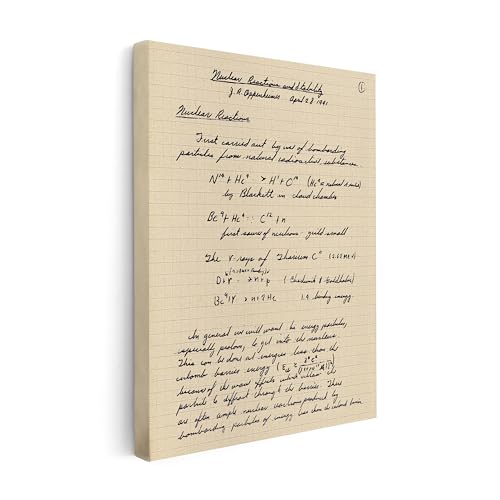 Nuclear Reactions and Stability ①
J. R. Oppenheimer April 28 1941
Nuclear Reactions
First carried out by use of bombarding
particles from natural radioactive substances.
N¹⁴ + He⁴ → H¹ + C¹⁴ (He⁴ = natural α
by Blackett in cloud chamber
Be⁹ + He⁴ C¹² + n
first source of neutrons - yield small
The γ-rays of Thorium C" (2.62 MeV)
D + γ → n + p (Chadwick & Goldhaber)
Be⁹ + γ → n + 2He binding energy
In general we will want hi energy particles,
especially protons, to get into the nucleus.
This can be done at energies less than the
coulomb barrier energy
because of the wave effects which allow the
particle to diffract through the barrier. There
are often ample nuclear reactions produced by
bombarding particles of energy less than the coulomb barrier